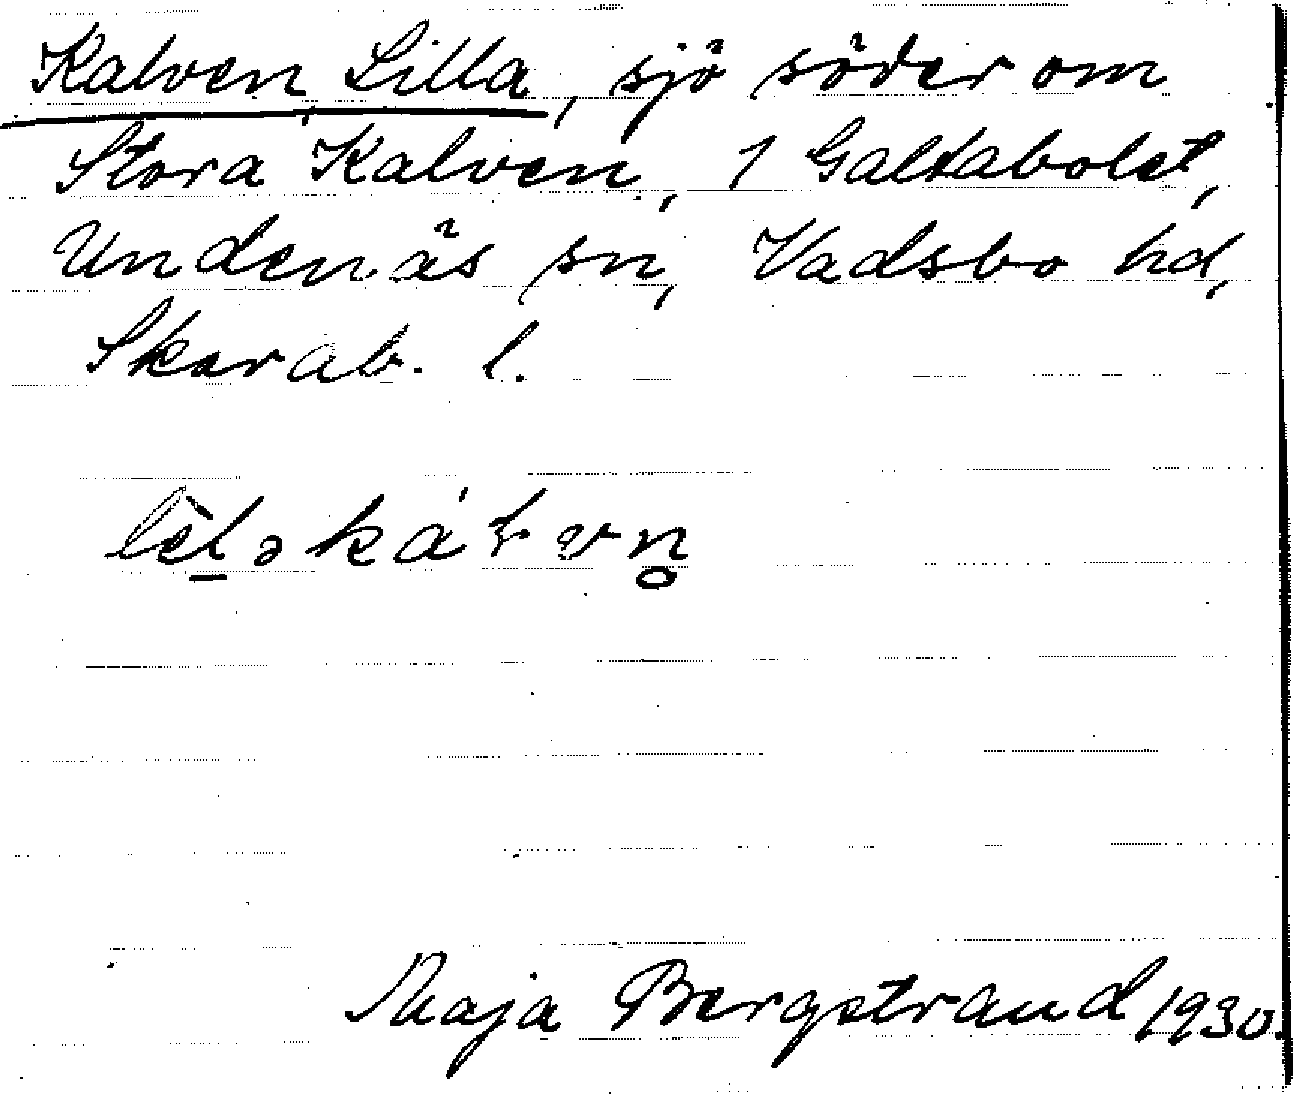 Kalven Lilla, sjö söder om
Stora Kalven, 1 Galtabolet,
Undenäs sn, Vadsbo hd,
Skarab. l.
Maja Bergstrand 1930.